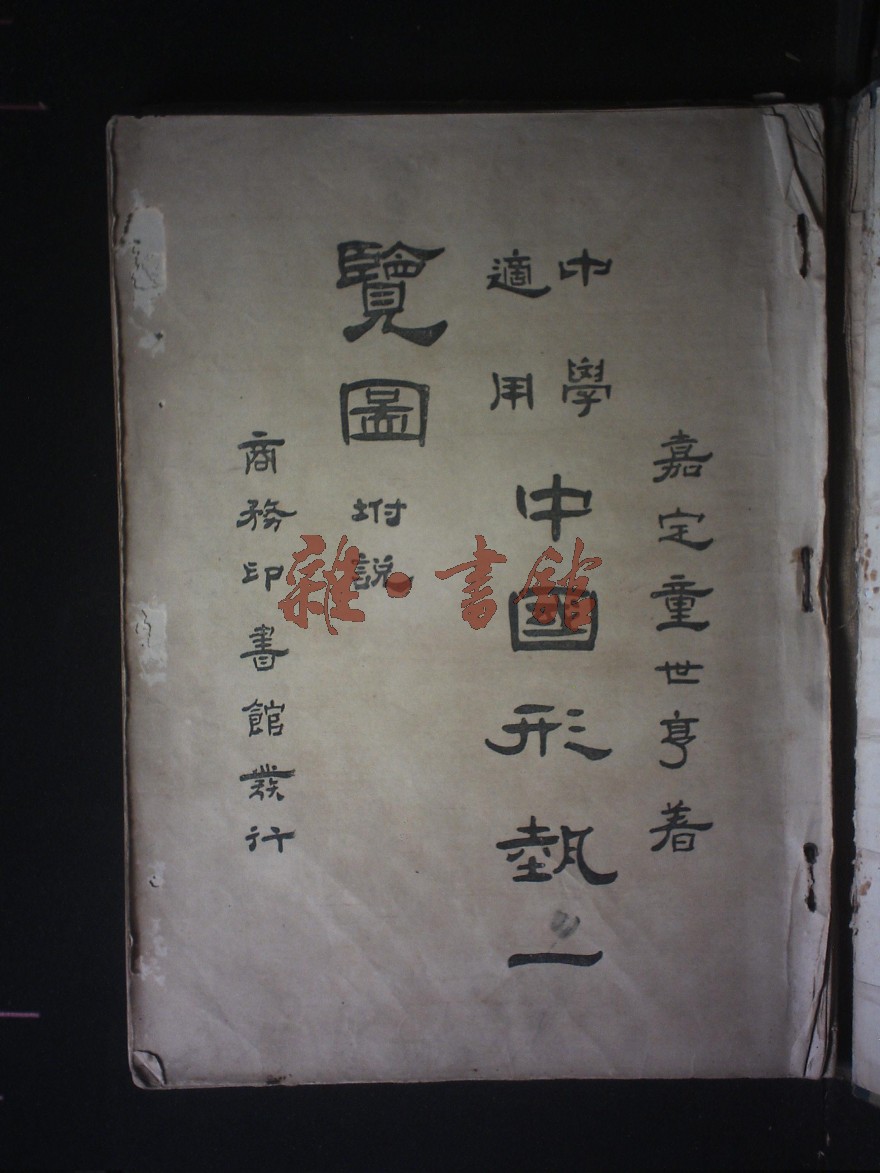 嘉定童世亨着
中學
適用
中國形埶一
覽圖
坿說
商務印書館發行
雜·書館